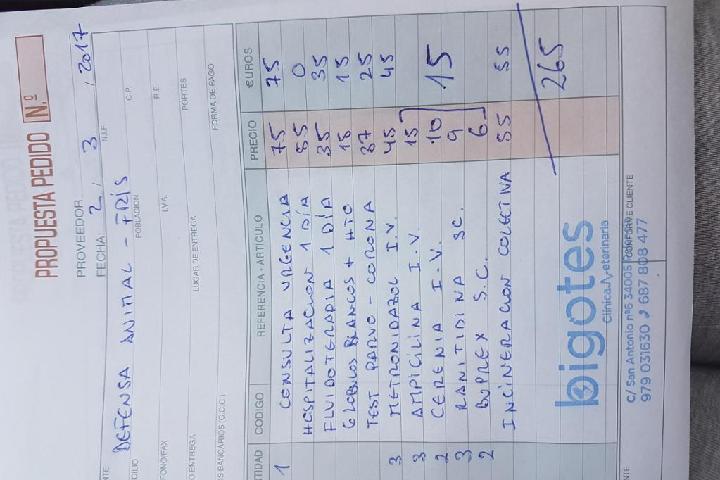 PROPUESTA PEDIDO N.º
PROVEEDOR
FECHA 2 / 3 / 2017
N.I.F.
DEFENSA ANIMAL - FRÍS
POBLACIÓN
C.P.
I.V.A.
R.E.
LUGAR DE ENTREGA
PORTES
FORMA DE PAGO
CODIGO REFERENCIA - ARTICULO PRECIO €UROS
1 CONSULTA URGENCIA 75 75
HOSPITALIZACION 1 DÍA 55 0
FLUIDOTERAPIA 1 DÍA 35 35
GLOBULOS BLANCOS + HTO 15 15
TEST PARVO - CORONA 37 25
3 METRONIDAZOL I.V. 45 45
3 AMPICILINA I.V. 15
2 CERENIA I.V. 10 15
3 RANITIDINA SC. 9
2 BUPREX S.C. 6
INCINERACION COLECTIVA 55 55
265
bigotes
Clínica Veterinaria
C/ San Antonio nº6 34005
979 031630 687 808 477